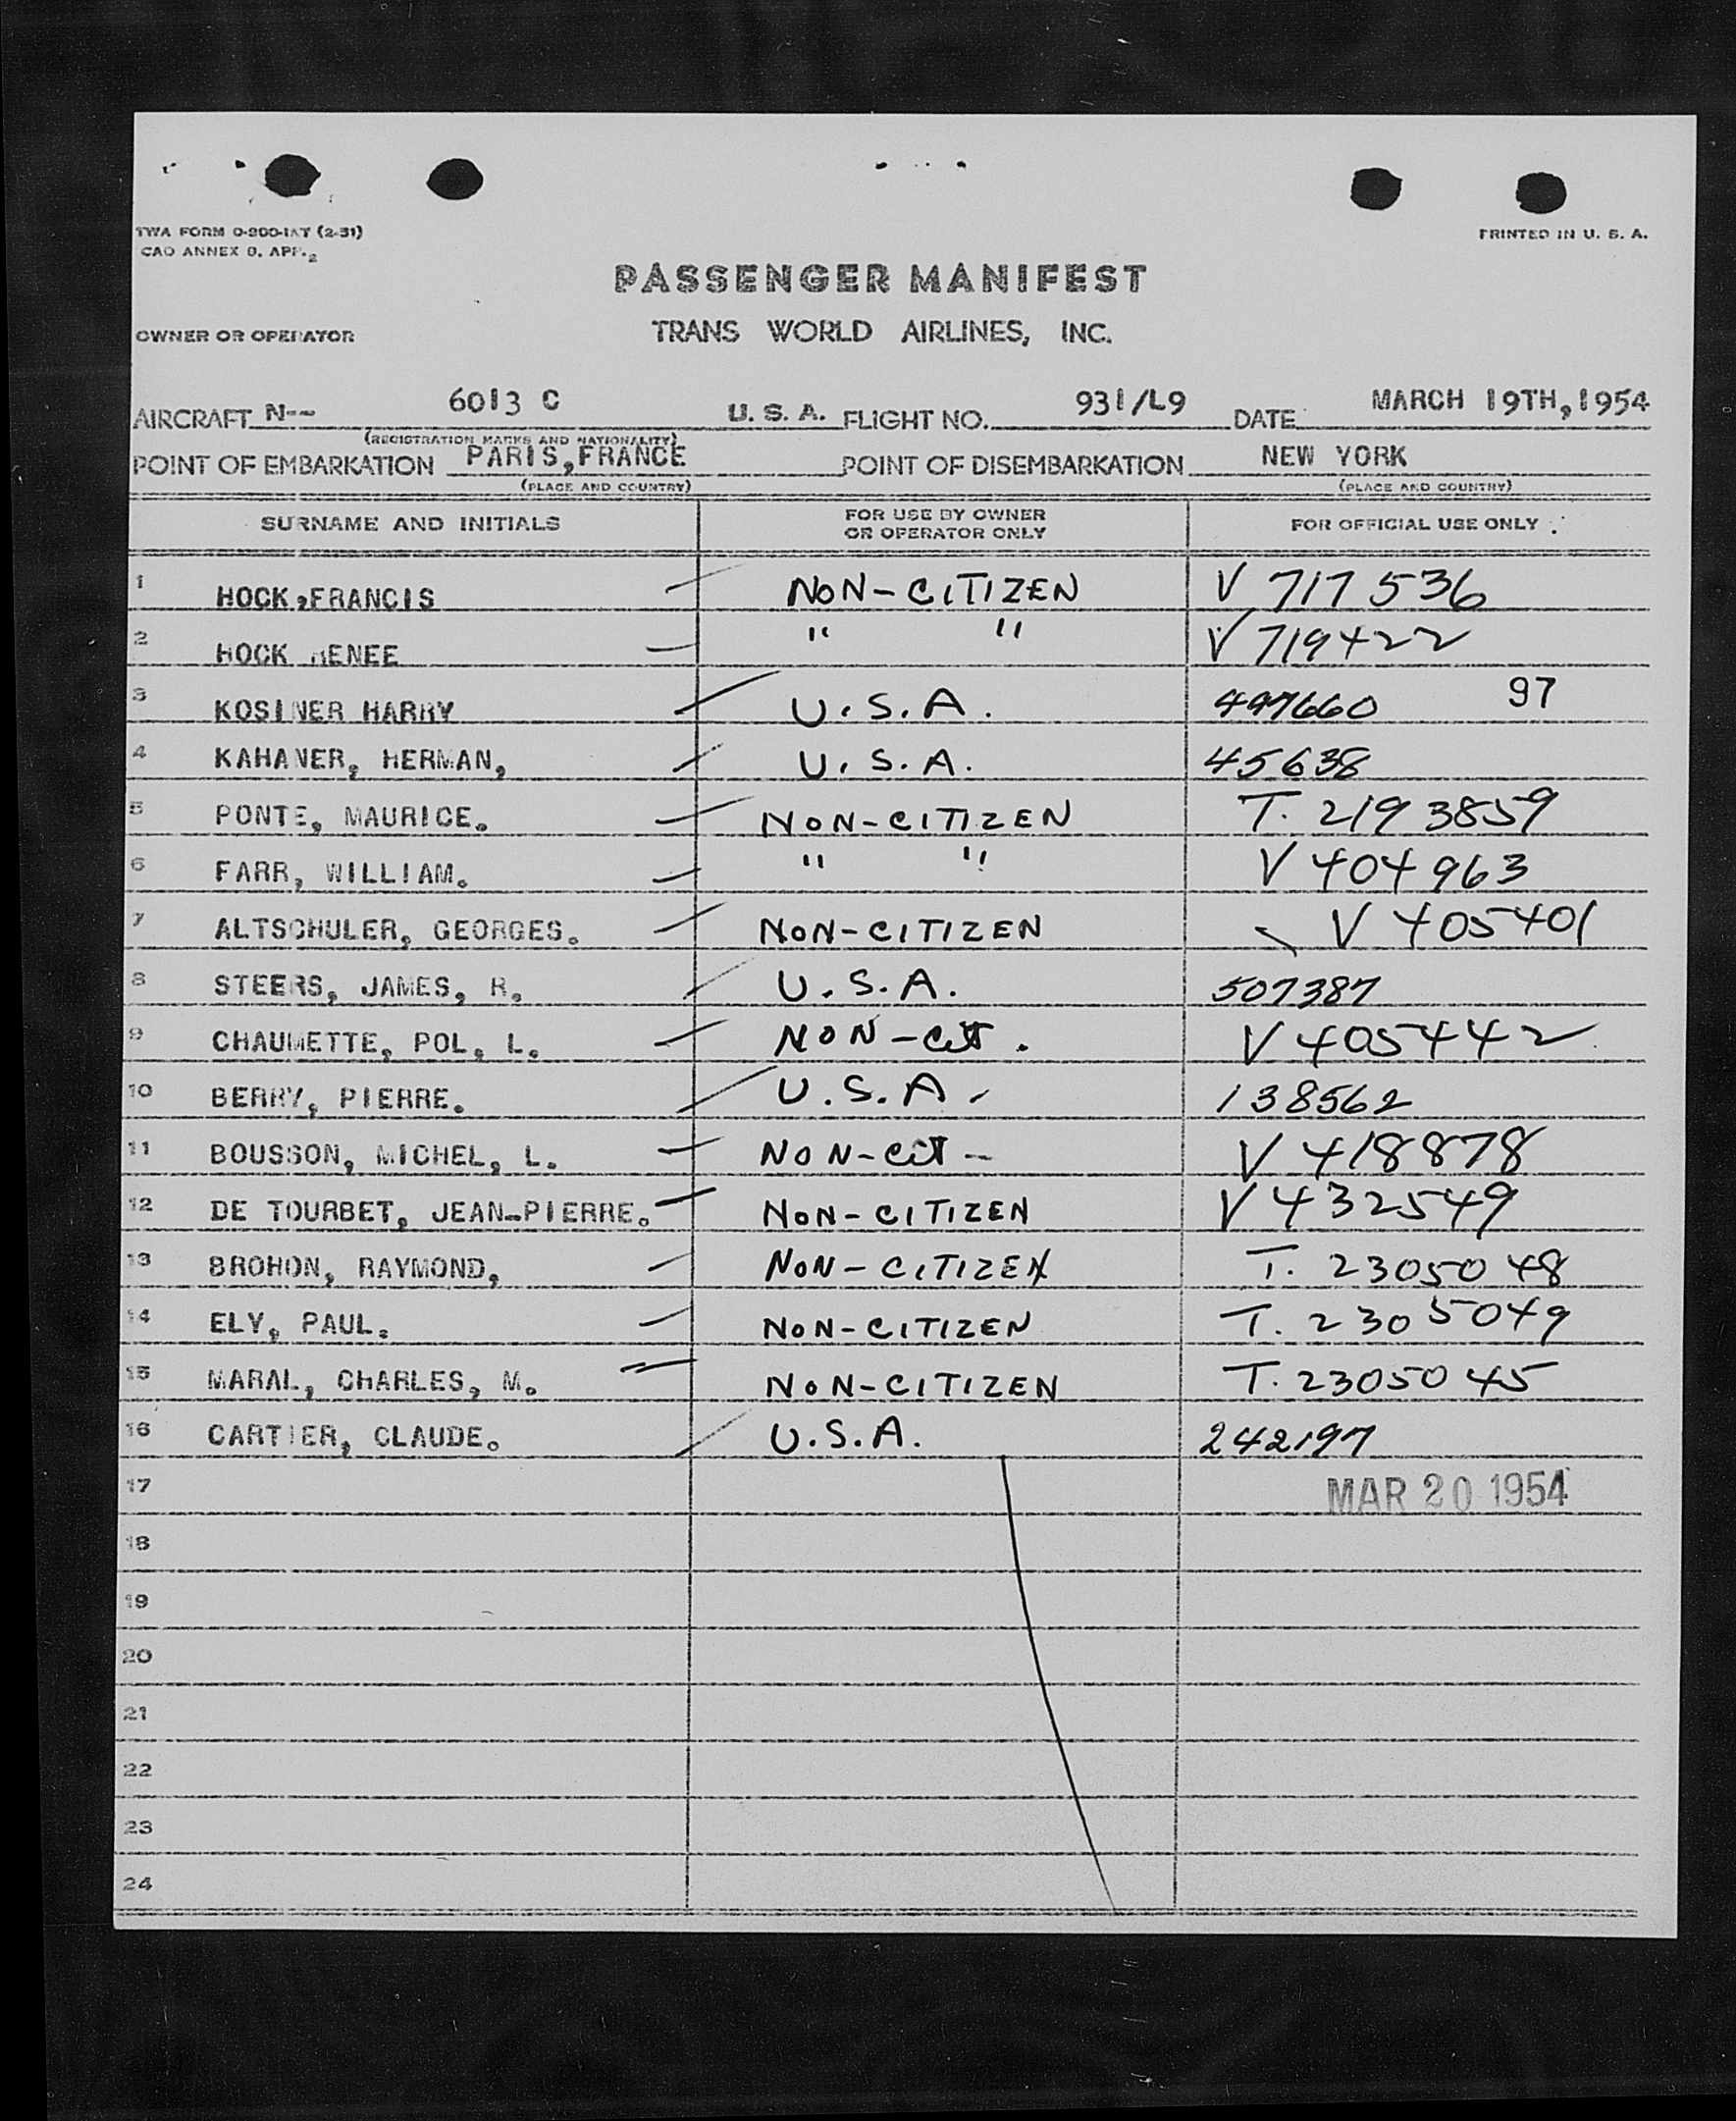 TWA FORM O-200-INT (2-51)
CAO ANNEX 9, APP. 2
PRINTED IN U. S. A.
PASSENGER MANIFEST
OWNER OR OPERATOR TRANS WORLD AIRLINES, INC.
AIRCRAFT N-- 6013 C U. S. A. FLIGHT NO. 931/L9 DATE MARCH 19TH,1954
(REGISTRATION MARKS AND NATIONALITY)
POINT OF EMBARKATION PARIS,FRANCE POINT OF DISEMBARKATION NEW YORK
(PLACE AND COUNTRY) (PLACE AND COUNTRY)
SURNAME AND INITIALS FOR USE BY OWNER OR OPERATOR ONLY FOR OFFICIAL USE ONLY
1 HOCK,FRANCIS NON-CITIZEN V 717536
2 HOCK RENEE " " V 719422
3 KOSINER HARRY U.S.A. 497660 97
4 KAHANER, HERMAN, U.S.A. 45638
5 PONTE, MAURICE. NON-CITIZEN T. 2193859
6 FARR, WILLIAM. " " V 404963
7 ALTSCHULER, GEORGES. NON-CITIZEN V 405401
8 STEERS, JAMES, R. U.S.A. 507387
9 CHAUMETTE, POL, L. NON-Cit. V 405442
10 BERRY, PIERRE. U.S.A. 138562
11 BOUSSON, MICHEL, L. NON-Cit- V 418878
12 DE TOURBET, JEAN-PIERRE. NON-CITIZEN V 432549
13 BROHON, RAYMOND, NON-CITIZEN T. 2305048
14 ELY, PAUL. NON-CITIZEN T. 2305049
15 MARAL, CHARLES, M. NON-CITIZEN T. 2305045
16 CARTIER, CLAUDE. U.S.A. 242197
17 MAR 20 1954
18
19
20
21
22
23
24